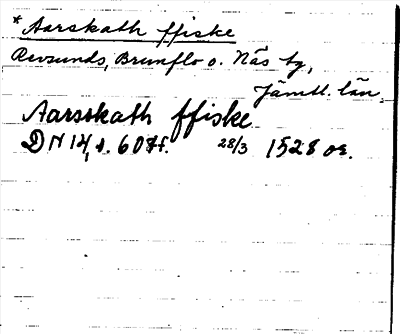 * Aarskath ffiske
Revsunds, Brunflo o. Näs tg,
Jämtl. län.
Aarsskath ffiske
DN 14, s. 607f. 28/3 1528 or.